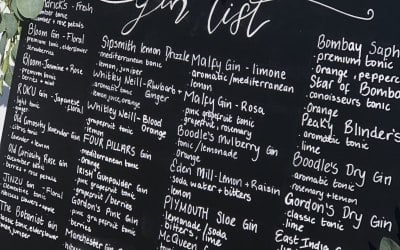 Gin list
Hendrick's - Fresh
tonic
berries
Bloom Gin - Floral
premium tonic, elderflower
strawberries
Bloom - Jasmine + Rose
premium tonic
berries
ROKU Gin - Japanese
light tonic
ginger
Old Curiosity lavender Gin
tonic
lemon
Old Curiosity Rose Gin
cucumber tonic
berries + rose petals
JINZU Gin - Floral
classic tonic
elderflower
The Botanist Gin
tonic
Sipsmith lemon Drizzle
mediterranean tonic
lemon
Whitley Neill - Rhubarb +
aromatic tonic Ginger
pink, orange
Whitley Neill - Blood
tonic Orange
orange
FOUR PILLARS Gin
mediterranean tonic
orange
Irish Gunpowder Gin
pink grapefruit tonic
grapefruit/berries
Gordon's Pink Gin
pink grapefruit tonic
berries
Manchester Gin
Malfy Gin - limone
aromatic/mediterranean
lemon
Malfy Gin - Rosa
pink grapefruit tonic
grapefruit, rosemary
Boodle's Mulberry Gin
tonic/lemonade
Orange
Eden Mill - Lemon + Raisin
soda water + bitters
lemon
PLYMOUTH Sloe Gin
lemonade/soda
bitters
lime
McQueen
Bombay Saph
premium tonic
orange, pepperc
Star of Bomba
conoisseurs tonic
Orange
Peaky Blinder's
aromatic tonic
lime
Boodle's Dry Gin
aromatic tonic
rosemary + lemon
Gordon's Dry Gin
classic tonic
lime
East India